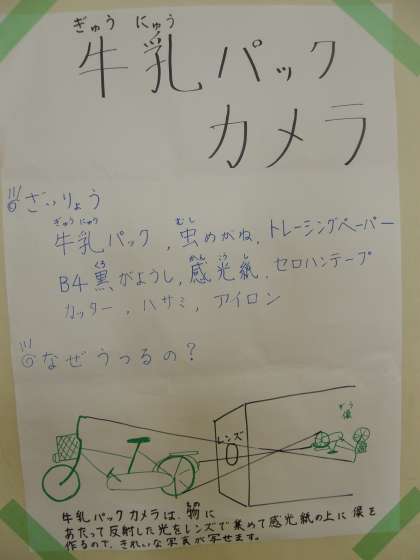 ぎゅう にゅう
牛乳パック
カメラ
ざいりょう
ぎゅうにゅう むし
牛乳パック, 虫めがね, トレーシングペーパー
くろ かん こう し
B4黒がようし, 感光紙, セロハンテープ
カッター, ハサミ, アイロン
なぜうつるの?
レンズ
ぞう
像
もの
牛乳パックカメラは、物に
あたって反射した光をレンズで集めて感光紙の上に像を
作るので、きれいな写真が写せます。